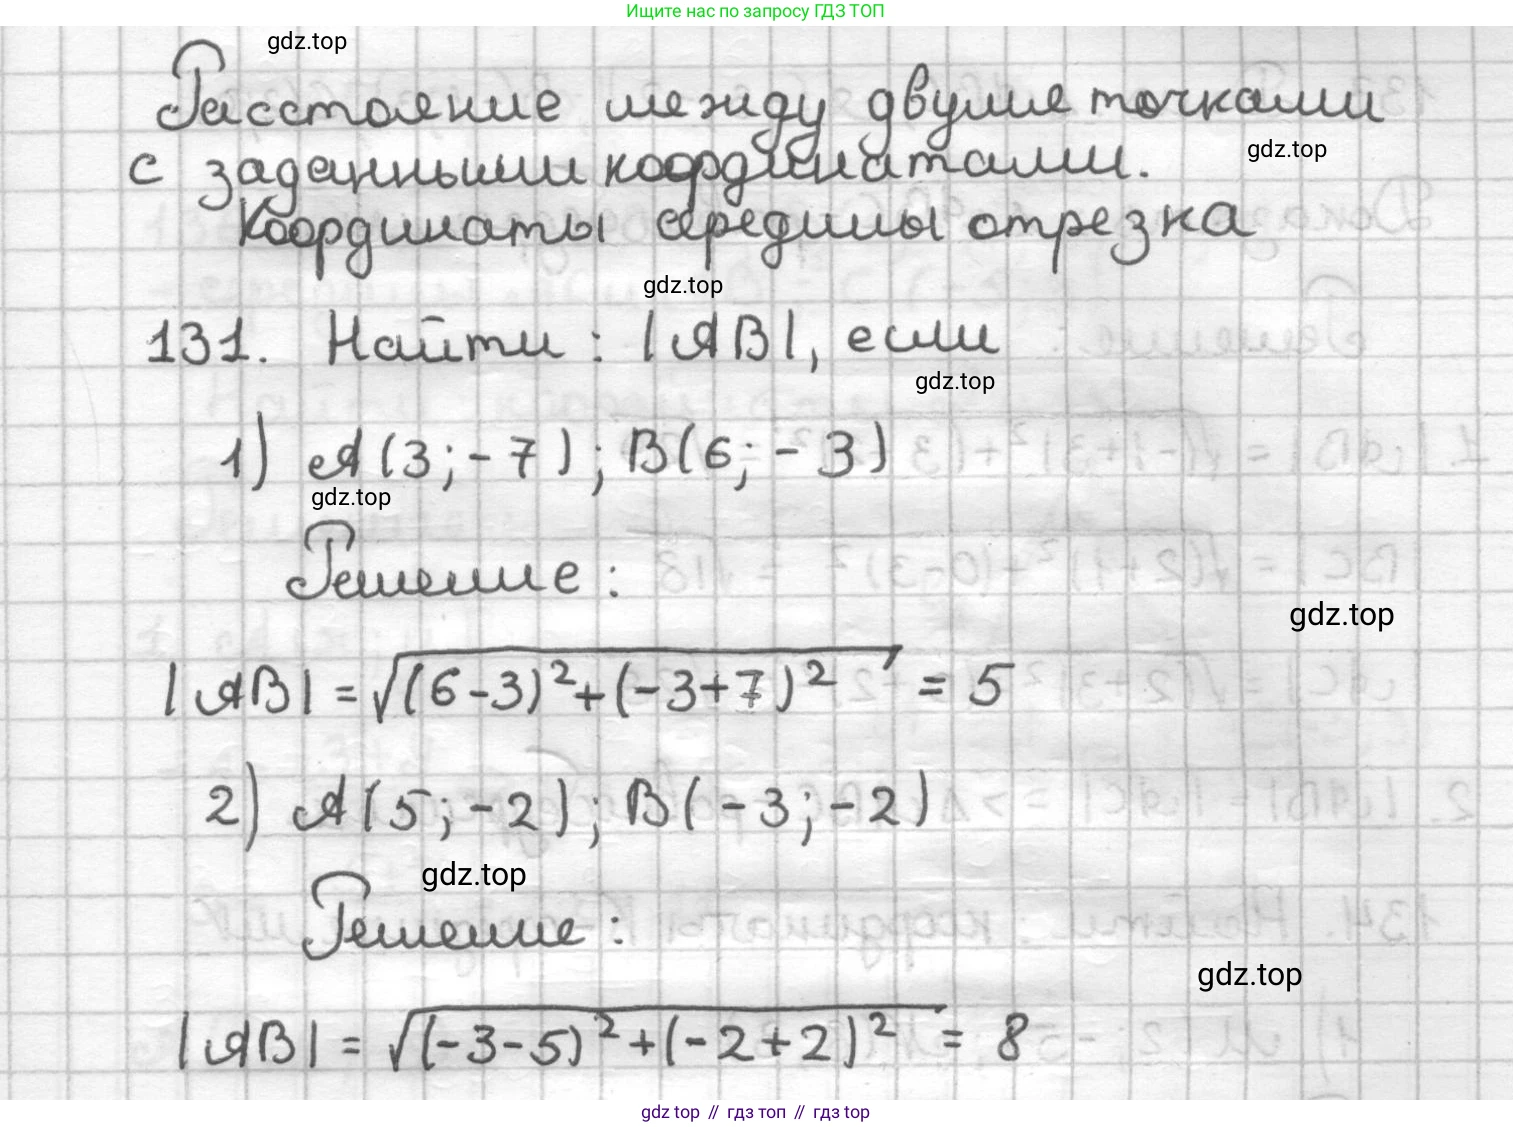 Ищите нас по запросу ГДЗ ТОП
gdz.top
Расстояние между двумя точками
с заданными координатами.
gdz.top
Координаты середины отрезка
gdz.top
131. Найти: |AB|, если
gdz.top
1) A(3;-7); B(6;-3)
gdz.top
Решение:
gdz.top
|AB| = √(6-3)²+(-3+7)² = 5
2) A(5;-2); B(-3;-2)
gdz.top
Решение:
gdz.top
|AB| = √(-3-5)²+(-2+2)² = 8
gdz top // гдз топ // гдз top